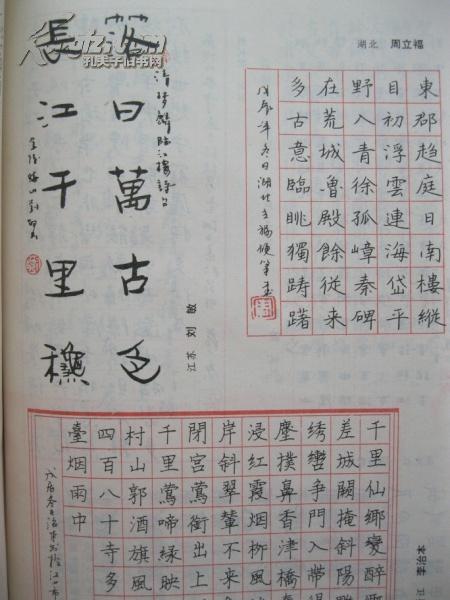 湖北 周立福
東郡趋庭日南樓縱
目初浮雲連海岱平
野入青徐孤嶂秦碑
在荒城魯殿餘從来
多古意臨眺獨躊躇
戊辰年冬日湖北立福硬筆書
落日萬古色
長江千里穐
清梦麟临江楼詩句
江苏 刘敏
千里仙鄉變醉
差城闕掩斜陽
绣巒争門入帶
塵撲鼻香津橋
浸红霞烟柳風
岸斜翠輦不来
閉宫鶯銜出上
千里鶯啼緑映
村山郭酒旗風
四百八十寺多
臺烟雨中
江 李治本
孔夫子旧书网